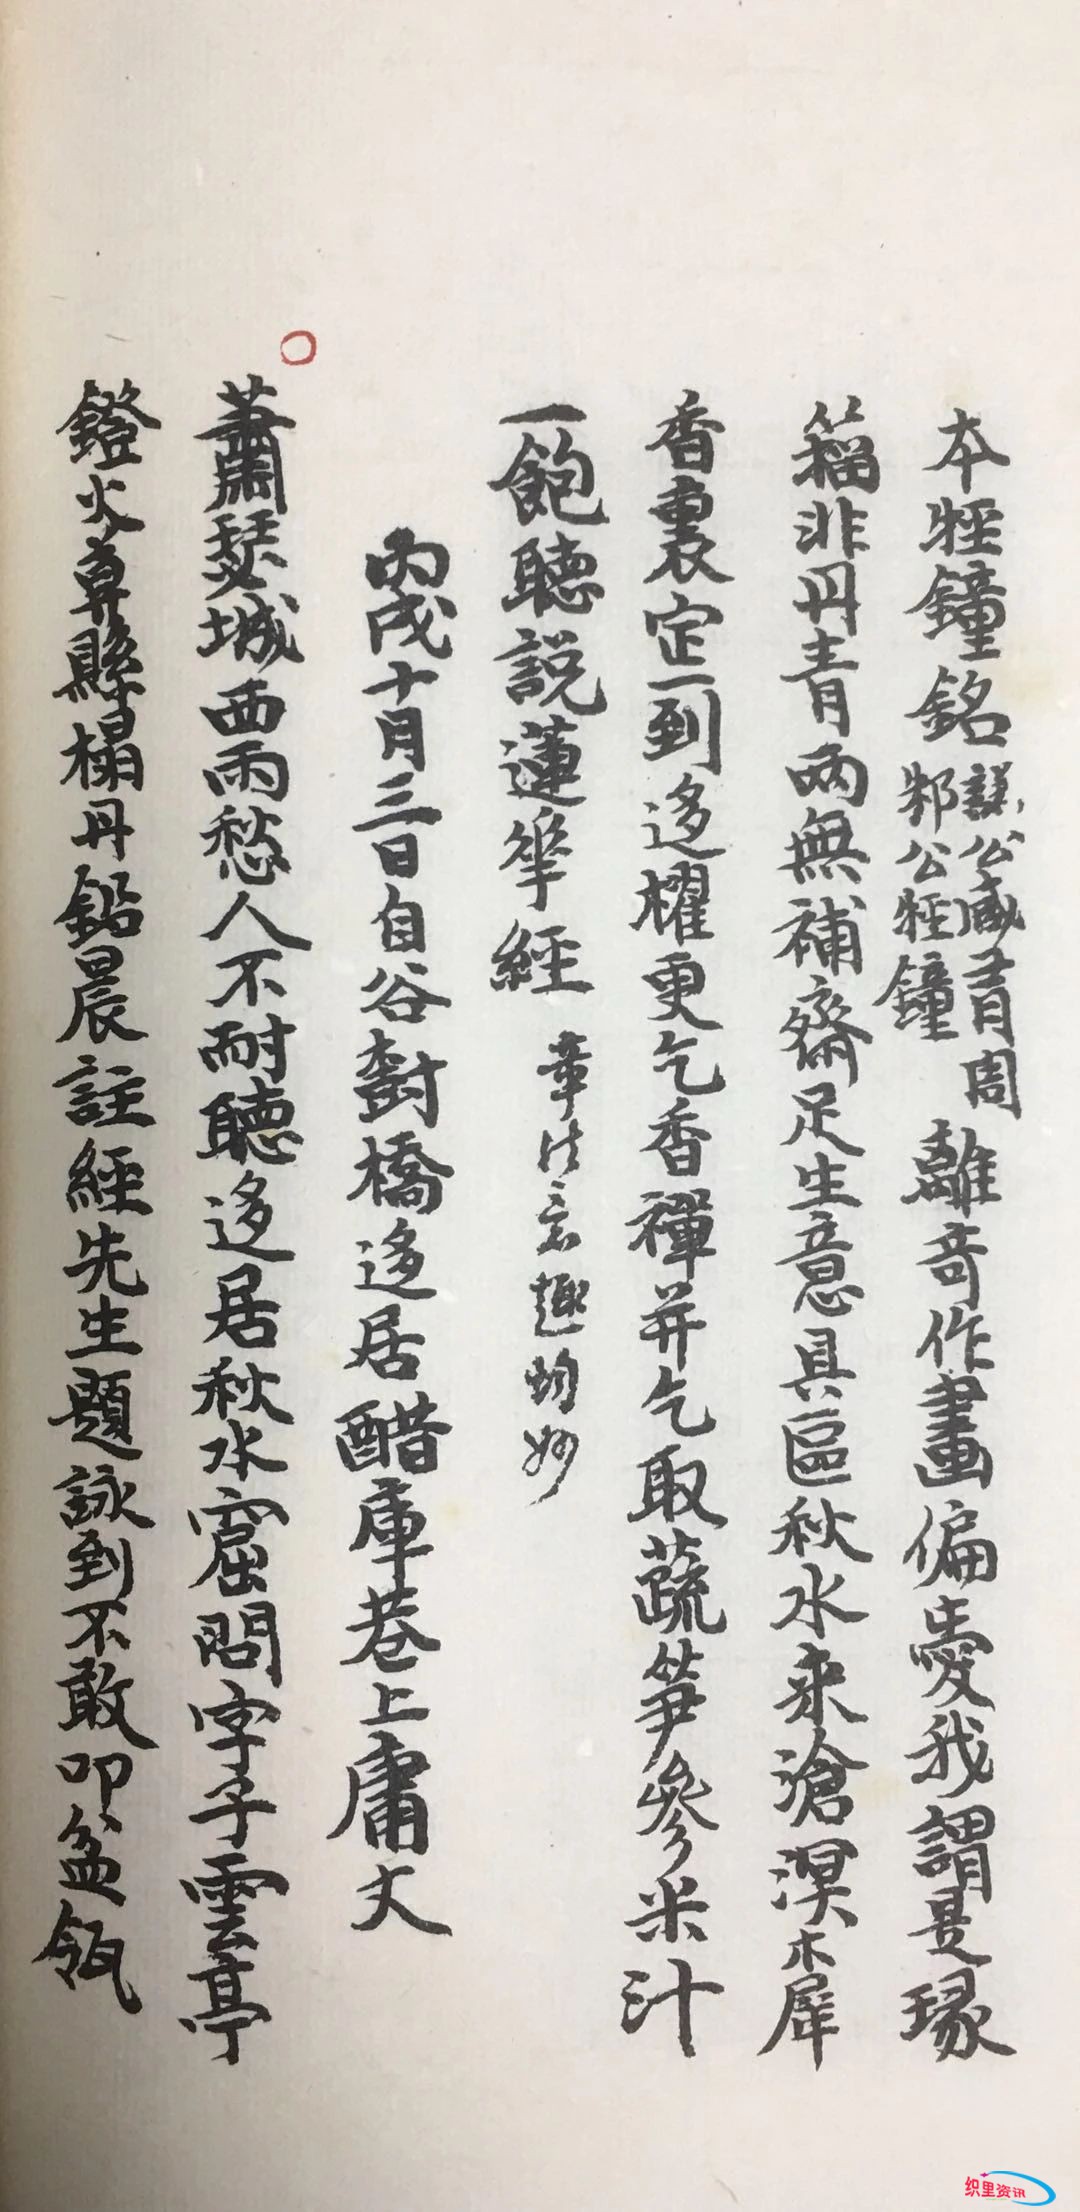 本牼鐘銘謀公臧青周邾公牼鐘離奇作畫偏愛我謂是瑑
籀非丹青兩無補齋足生意具區秋水来滄溟木犀
香裏定一到迻櫂更乞香禪并乞取蔬筍參米汁
一飽聽説蓮華經 章法意趣均妙
丙戌十月三日自谷樹橋迻居醋庫巷上庸丈
蕭瑟城西雨愁人不耐聽迻居秋水窟問字子雲亭
鐙火尊縣榻丹鉛晨註經先生題詠到不敢叩盆瓴
织里资讯